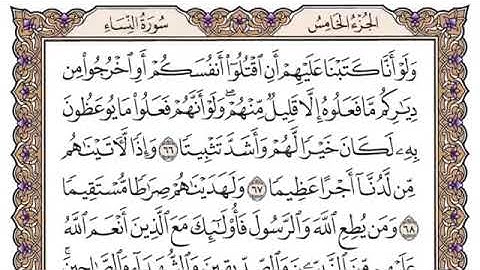 الجزء الخامس سورة النساء
وَلَوۡ أَنَّا كَتَبۡنَا عَلَيۡهِمۡ أَنِ ٱقۡتُلُوٓاْ أَنفُسَكُمۡ أَوِ ٱخۡرُجُواْ مِن
دِيَٰرِكُم مَّا فَعَلُوهُ إِلَّا قَلِيلٞ مِّنۡهُمۡۖ وَلَوۡ أَنَّهُمۡ فَعَلُواْ مَا يُوعَظُونَ
بِهِۦ لَكَانَ خَيۡرٗا لَّهُمۡ وَأَشَدَّ تَثۡبِيتٗا ٦٦ وَإِذٗا لَّأٓتَيۡنَٰهُم
مِّن لَّدُنَّآ أَجۡرًا عَظِيمٗا ٦٧ وَلَهَدَيۡنَٰهُمۡ صِرَٰطٗا مُّسۡتَقِيمٗا
٦٨ وَمَن يُطِعِ ٱللَّهَ وَٱلرَّسُولَ فَأُوْلَٰٓئِكَ مَعَ ٱلَّذِينَ أَنۡعَمَ ٱللَّهُ
عَلَيۡهِم مِّنَ ٱلنَّبِيِّـۧنَ وَٱلصِّدِّيقِينَ وَٱلشُّهَدَآءِ وَٱلصَّٰلِحِينَۚ